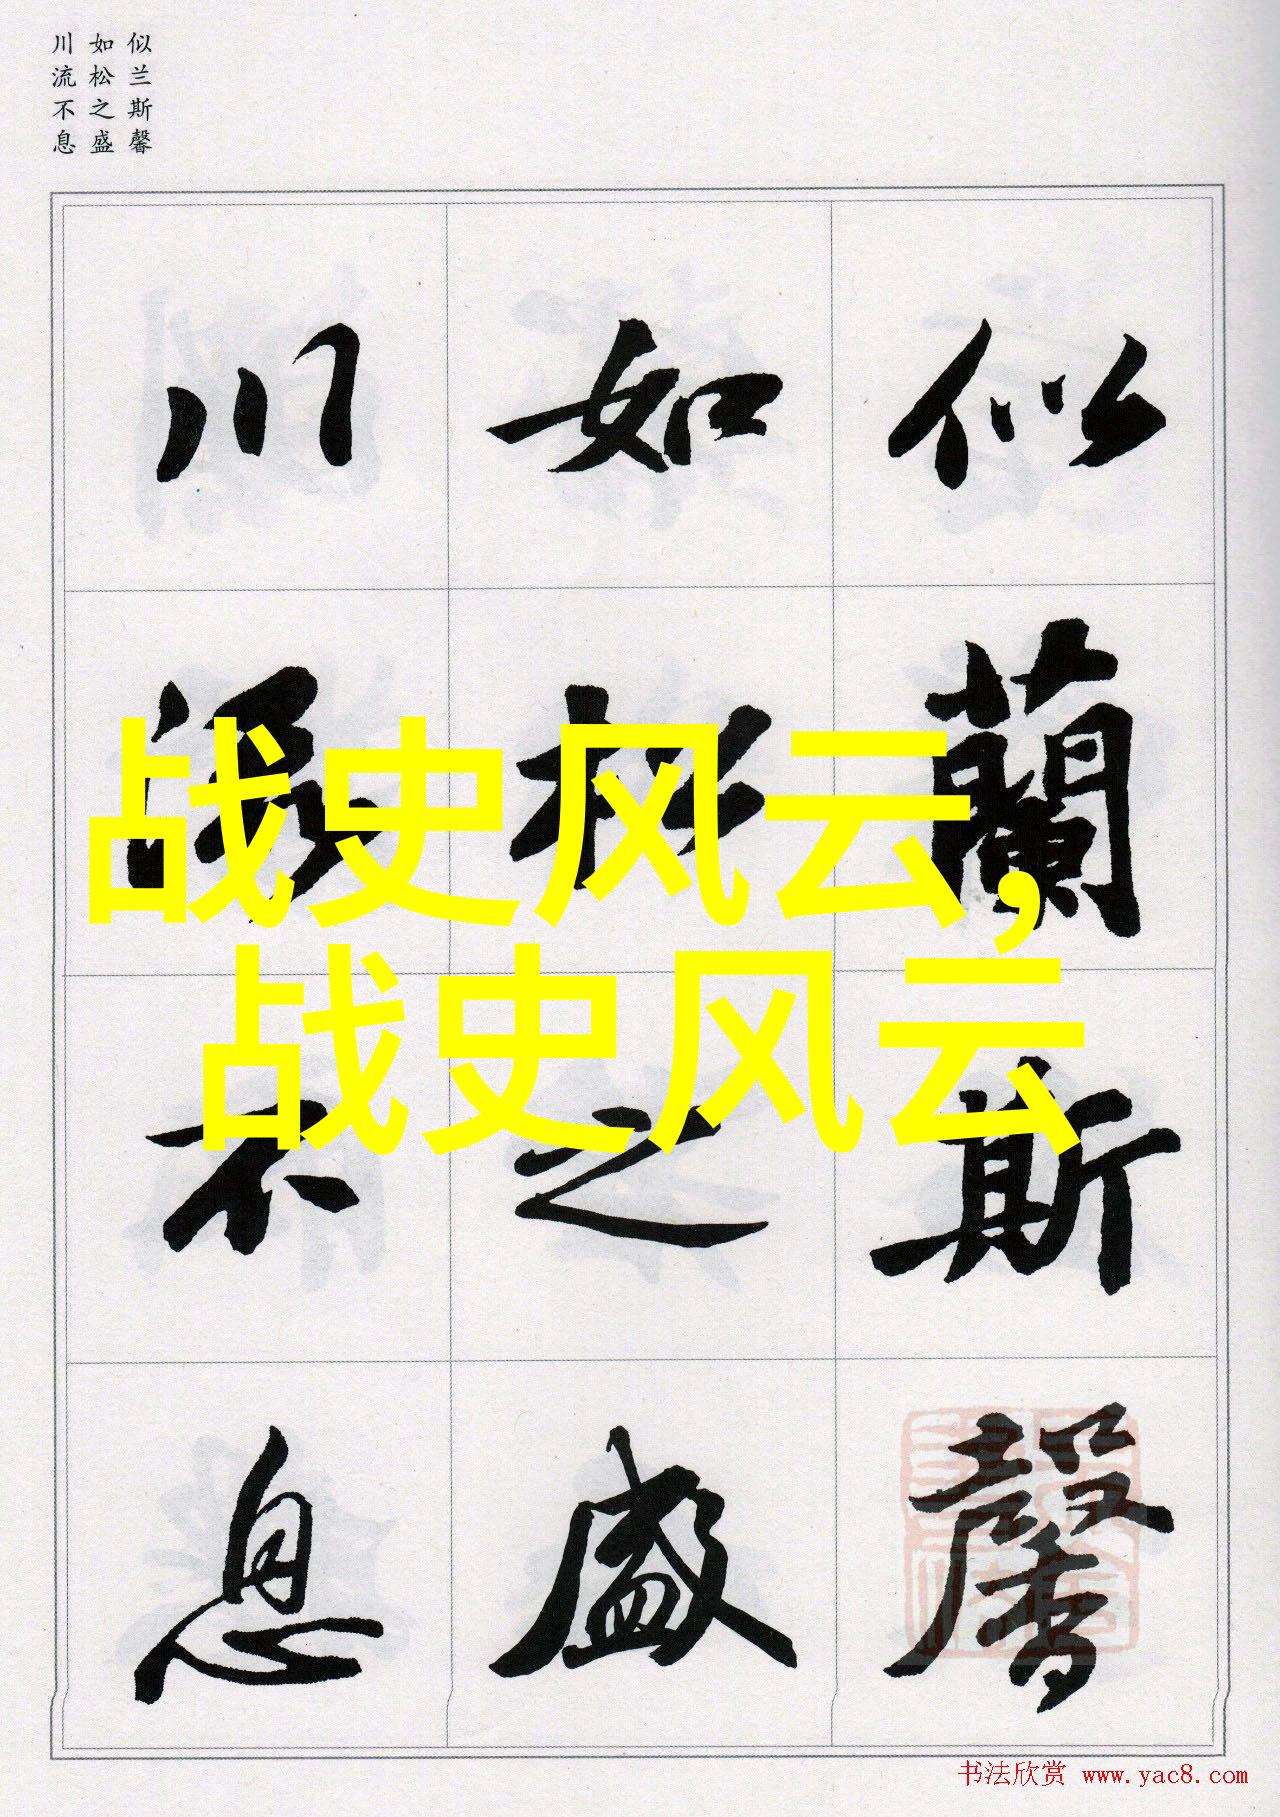 似兰斯馨
如松之盛
川流不息
似蘭斯馨
如松之盛
川流不息
战史风云,
战史风云
书法欣赏 www.yac8.com